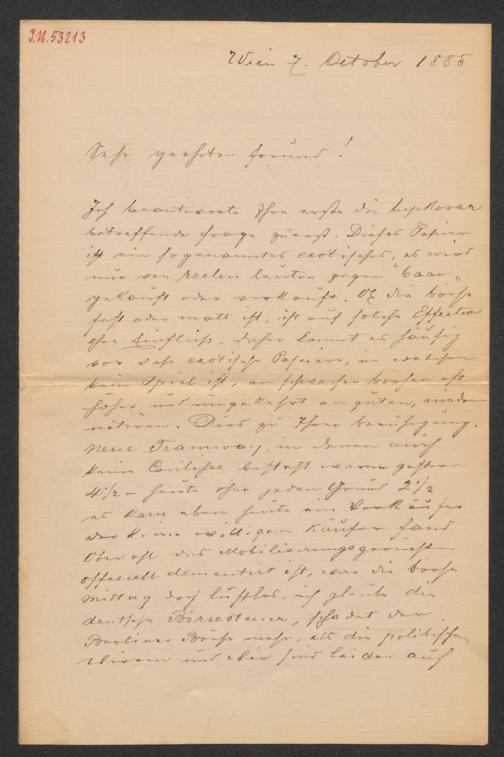 I.N. 53213
Wien 7. October 1885
Sehr geehrter Freund!
Ich beantworte Ihre erste die
betreffende Frage zuerst. Dieses Papier
ist ein sogenanntes exotisches, es wird
nur von reelen Leuten gegen "baar"
gekauft oder verkauft. Ob die Börse
fest oder matt ist, ist auf solche Effecten
ohne Einfluss, daher kommt es häufig
vor dass exotische Papiere, in welchen
kein Spiel ist, an schwachen Börsen oft
höher und umgekehrt an guten, nieder
notiren. Dies zu Ihrer Beruhigung.
Neue Tramway, in denen auch
keine Coulisse besteht waren gestern
4½ – heute ohne jeden Grund 2½
es kam eben heute ein Verkäufer
der keine willigen Käufer fand
Obwohl das Mobilisierungsgerücht
officiell dementirt ist, war die Börse
Mittag doch lustlos, ich glaube die
deutsche Börsesteuer, schadet der
Berliner Börse mehr, als die politischen
Wirren und wir sind leider auch